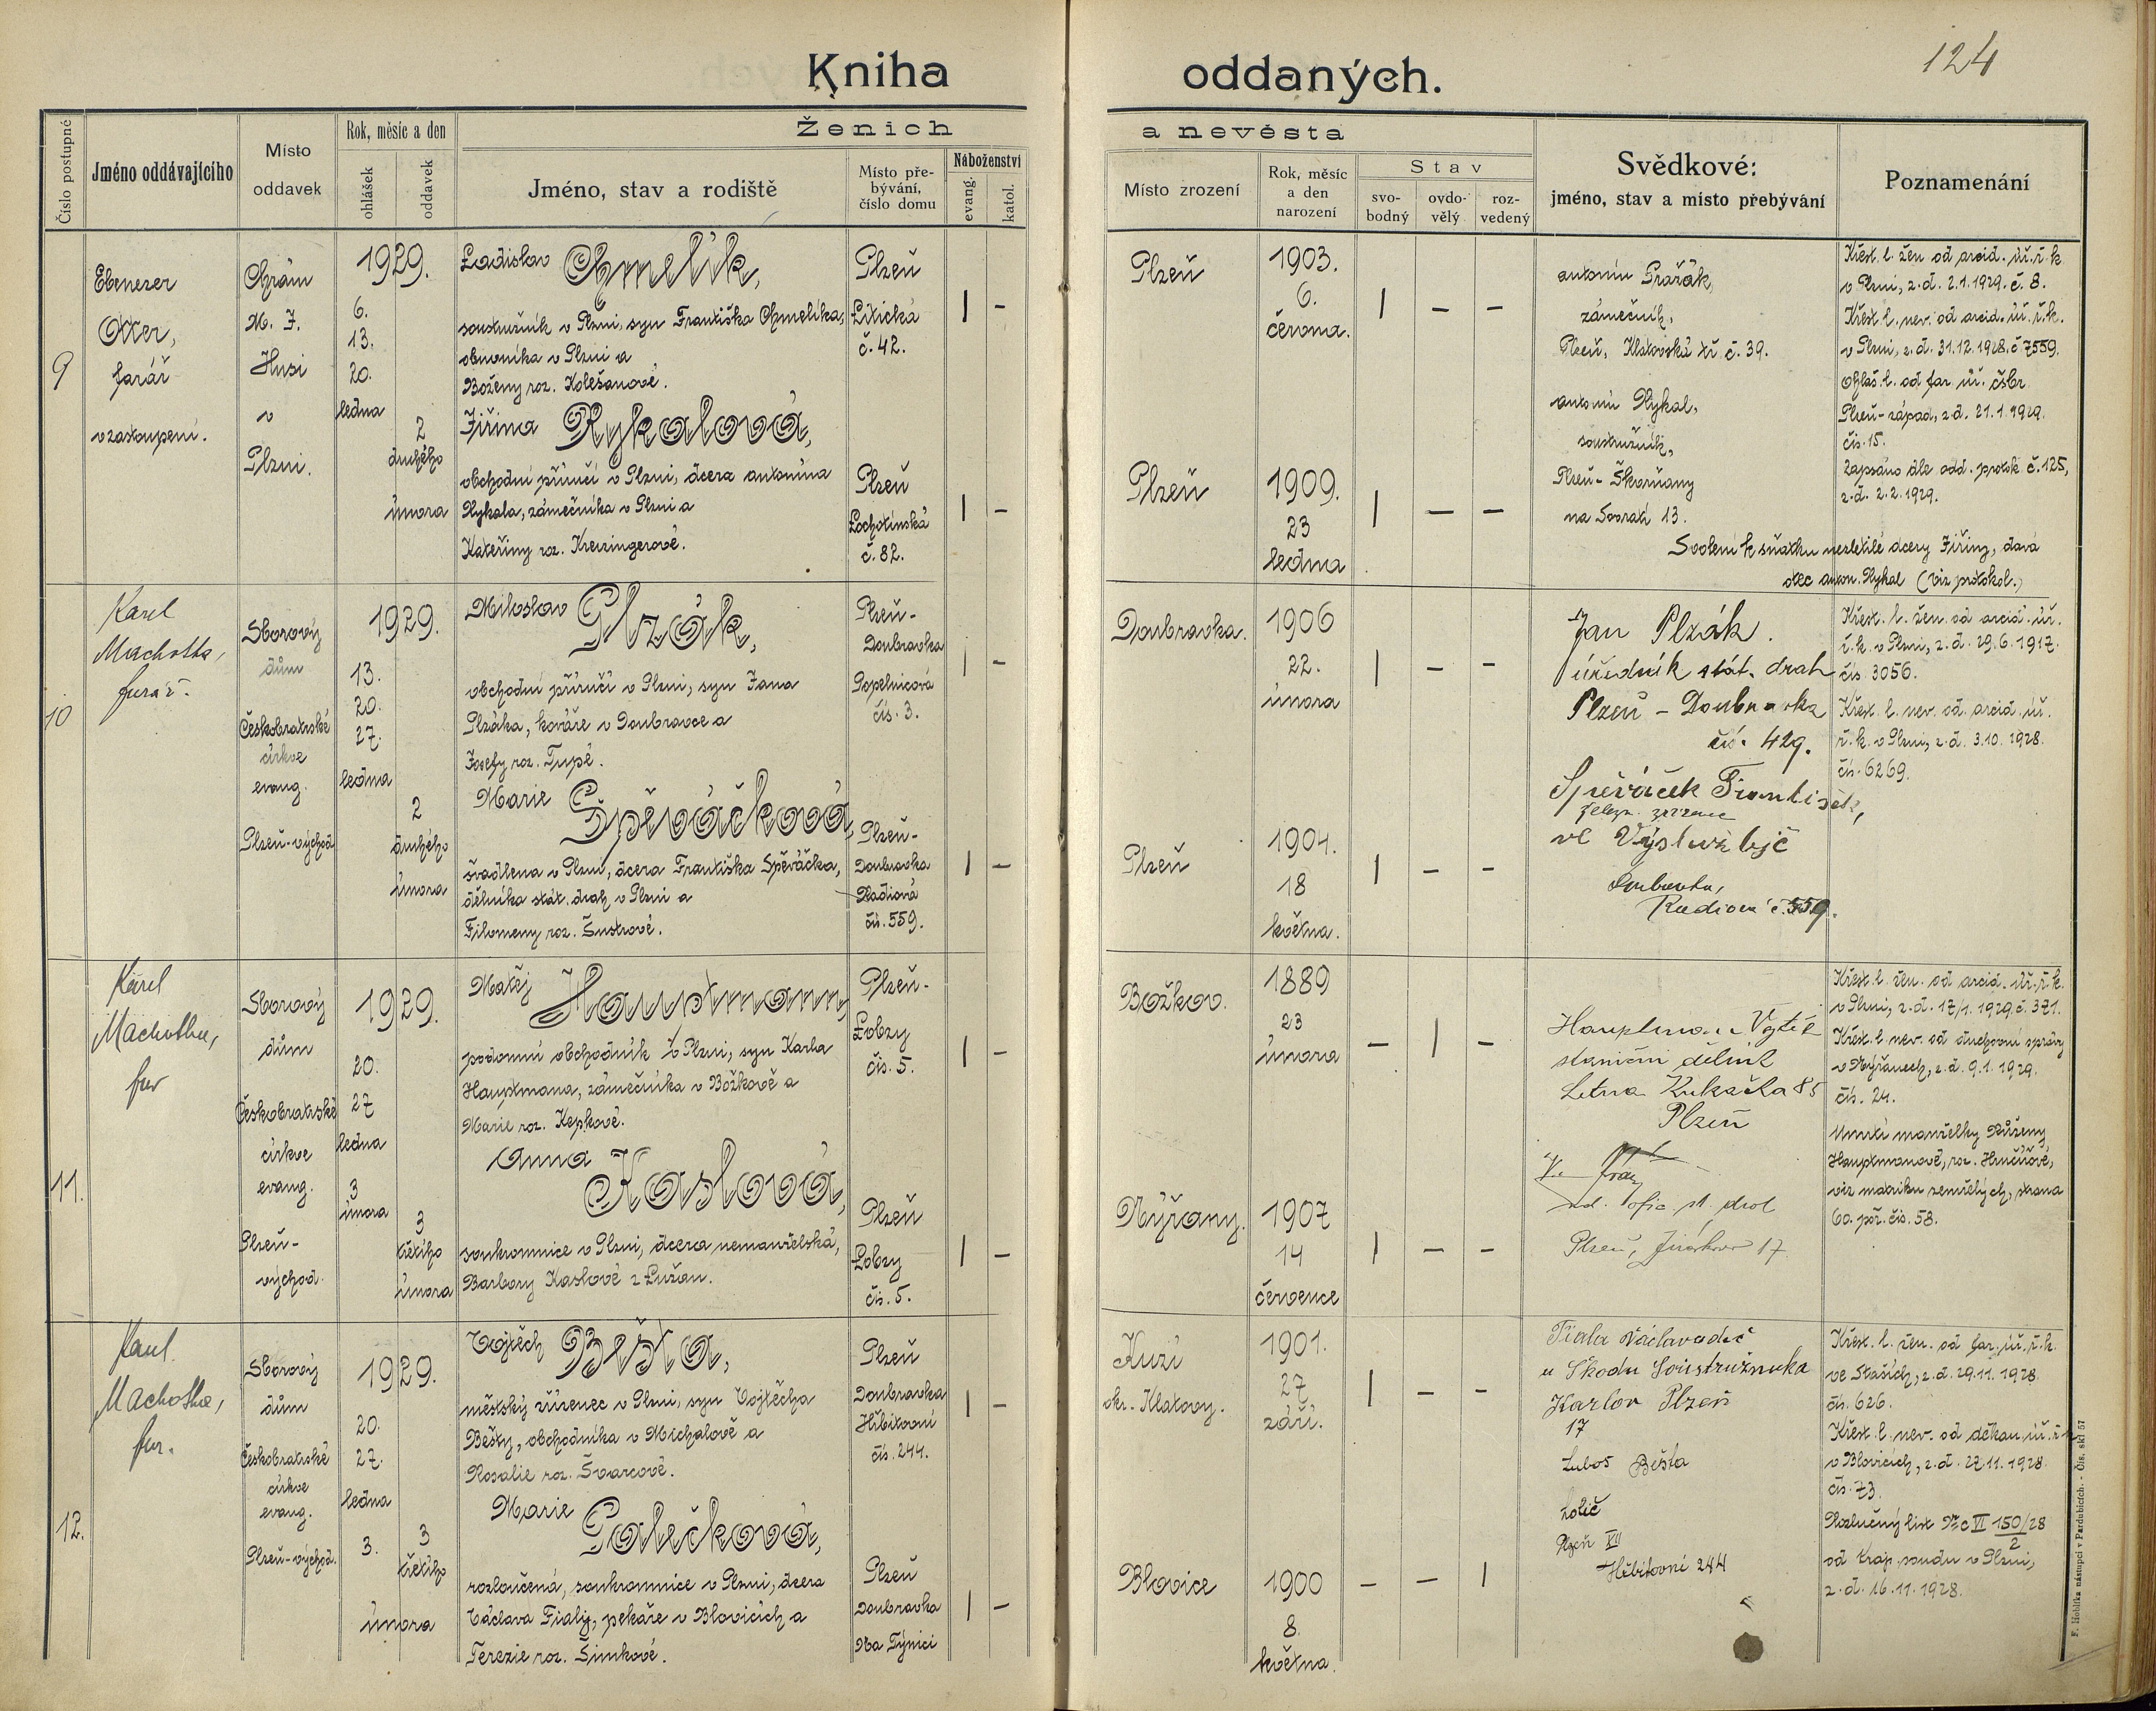 124
Kniha oddaných.
Číslo postupné
Jméno oddávajícího
Místo oddavek
Rok, měsíc a den
ohlášek
oddavek
Ženich a nevěsta
Jméno, stav a rodiště
Místo pře-
bývání,
číslo domu
Náboženství
evang.
katol.
Místo zrození
Rok, měsíc
a den
narození
Stav
svo-
bodný
ovdo-
vělý
roz-
vedený
Svědkové:
jméno, stav a místo přebývání
Poznamenání
9
Ebenezer
Otter,
farář
v zastoupení.
Chrám
M. J.
Husi
v
Plzni.
1929.
6.
13.
20.
ledna
2
druhého
února
Ladislav Chmelík,
soustružník v Plzni, syn Františka Chmelíka,
obuvníka v Plzni a
Boženy roz. Kolešanové.
Plzeň
Litická
č. 42.
| –
Plzeň
1903.
6.
června.
| – –
Jiřina Rykalová,
obchodní příručí v Plzni, dcera Antonína
Rykala, zámečníka v Plzni a
Kateřiny roz. Kreizingerové.
Plzeň
Lochotínská
č. 82.
| –
Plzeň
1909.
23
ledna
| – –
Antonín Pražák,
zámečník,
Plzeň, Klatovská tř. č. 39.
Antonín Rykal,
soustružník,
Plzeň - Škvrňany
na Sovrati 13.
Křest. l. žen. od arcid. úř. ř. k.
v Plzni, z. d. 2.1.1929. č. 8.
Křest. l. nev. od arcid. úř. ř. k.
v Plzni, z. d. 31.12.1928. č 7559.
Ohláš. l. od far. úř. čsbr.
Plzeň - západ, z d. 21.1.1929.
čís. 15.
Zapsáno dle odd. protok č. 125,
z. d. 2.2.1929.
Svolení k sňatku nezletilé dcery Jiřiny, dává
otec Anton. Rykal (viz protokol.)
10
Karel
Machotka,
farář.
Sborový
dům
Českobratrské
církve
evang.
Plzeň-východ
1929.
13.
20.
27.
ledna
2
druhého
února
Miloslav Plzák,
obchodní příručí v Plzni, syn Jana
Plzáka, kováře v Doubravce a
Josefy roz. Tupé.
Plzeň-
Doubravka
Popelnicová
čís. 3.
| –
Doubravka.
1906
22.
února
| – –
Marie Špěváčková,
švadlena v Plzni, dcera Františka Spěváčka,
dělníka stát. drah v Plzni a
Filomeny roz. Šustrové.
Plzeň-
Doubravka
Radiová
čís. 559.
| –
Plzeň
1904.
18
května.
| – –
Jan Plzák.
úředník stát. drah
Plzeň - Doubravka
čís. 429.
Spěváček František,
železn. zřízenec
Doubravka,
Radiová č. 559.
Křest. l. žen. od arcid. úř.
ř. k. v Plzni, z. d. 29.6.1917.
čís. 3056.
Křest. l. nev. od. arcid. úř.
ř. k. v Plzni, z. d. 3.10.1928.
čís. 6269.
11.
Karel
Machotka,
far
Sborový
dům
Českobratrské
církve
evang.
Plzeň-
východ.
1929.
20.
27
ledna
3
února
3
třetího
února
Matěj Hauptmann,
podomní obchodník v Plzni, syn Karla
Hauptmana, zámečníka v Božkově a
Marie roz. Kepkové.
Plzeň-
Lobzy
čís. 5.
| –
Božkov.
1889
23
února
– | –
Anna Kaslová,
soukromnice v Plzni, dcera nemanželská,
Barbory Kaslové z Lužan.
Plzeň
Lobzy
čís. 5.
| –
Nýřany.
1907
14
července
| – –
Hauptman Vojtěch
staniční dělník
Letna Kukačka 85
Plzeň
Plzeň, Jiráskova 17.
Křest. l. žen. od arcid. úř. ř. k.
v Plzni, z. d. 17/1. 1929. č. 371.
Křest. l. nev. od duchovní správy
v Nýřanech, z. d. 9.1.1929.
čís. 24.
Úmrtí manželky Růženy
Hauptmanové, roz. Hrnčířové,
viz matriku zemřelých, strana
60. poř. čís. 58.
12.
Karel
Machotka,
far.
Sborový
dům
Českobratrské
církve
evang.
Plzeň-východ.
1929.
20.
27.
ledna
3.
3
třetího
února
Vojtěch Běšta,
městský zřízenec v Plzni, syn Vojtěcha
Běšty, obchodníka v Michalově a
Rosalie roz. Švarcové.
Plzeň
Doubravka
Hřbitovní
čís. 244.
| –
Kuzí
okr. Klatovy.
1901.
27
září.
| – –
Marie Palečková,
rozloučená, soukromnice v Plzni, dcera
Václava Fialy, pekaře v Blovicích a
Terezie roz. Šimkové.
Plzeň
Doubravka
Na Týnici
| –
Blovice
1900
8.
května.
– – |
Fiala Václav
u Škodu Soustružníka
Karlov Plzeň
17
Luboš Běšta
holič
Plzeň XII
Hřbitovní 244
Křest. l. žen. od far. úř. ř. k.
ve Staších, z. d. 29.11.1928.
čís. 626.
Křest. l. nev. od děkan. úř. ř. k.
v Blovicích, z. d. 27.11.1928.
čís. 73.
Rozlučný list Nc VI 150/28
2
od kraj. soudu v Plzni,
z. d. 16.11.1928.
F. Hoblíka nástupci v Pardubicích. - Čís. skl. 57